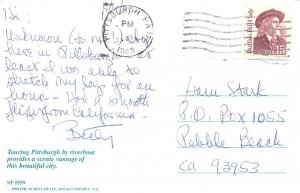 Hi
PITTSBURGH PA
PM
1989
Buffalo Bill Cody
15 USA
Unknown (to me!) stop
here in Pittsburgh - at
least I was able to
stretch my legs for an
hour. Had a smooth
flight from California -
Betty
Ham Stark
P.O. Box 1055
Pebble Beach
Ca 93953
Touring Pittsburgh by riverboat
provides a scenic vantage of
this beautiful city.
NT 5559